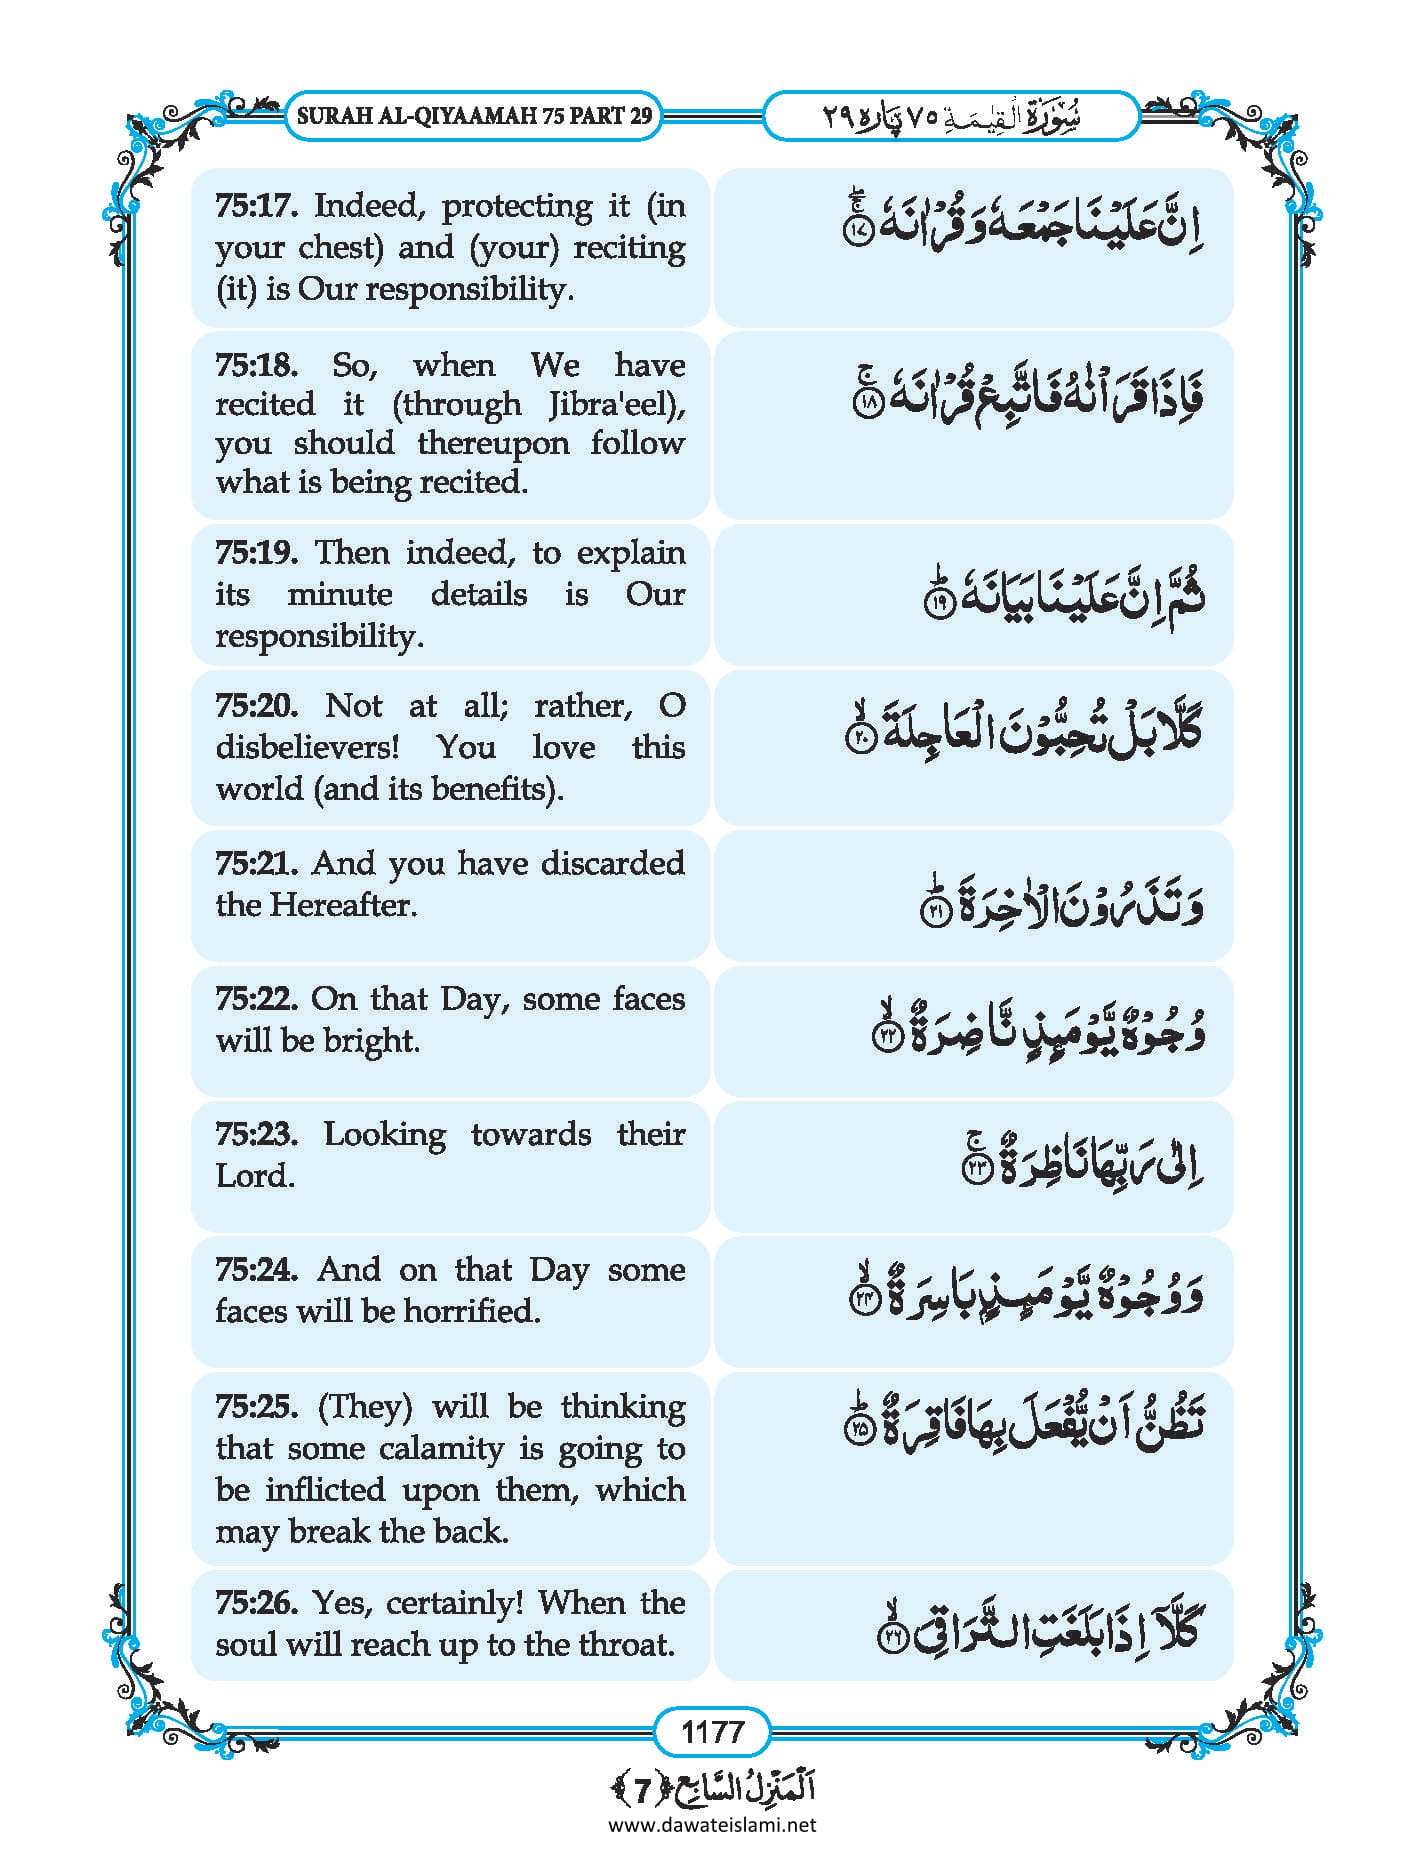 SURAH AL-QIYAAMAH 75 PART 29
سُوْرَةُ الْقِیٰمَةِ ٧٥ پَارہ ٢٩
75:17. Indeed, protecting it (in
your chest) and (your) reciting
(it) is Our responsibility.
اِنَّ عَلَیْنَا جَمْعَهٗ وَ قُرْاٰنَهٗ ۚۖ﴿۱۷﴾
75:18. So, when We have
recited it (through Jibra'eel),
you should thereupon follow
what is being recited.
فَاِذَا قَرَاْنٰهُ فَاتَّبِعْ قُرْاٰنَهٗ ۚ﴿۱۸﴾
75:19. Then indeed, to explain
its minute details is Our
responsibility.
ثُمَّ اِنَّ عَلَیْنَا بَیَانَهٗ ؕ﴿۱۹﴾
75:20. Not at all; rather, O
disbelievers! You love this
world (and its benefits).
كَلَّا بَلْ تُحِبُّوْنَ الْعَاجِلَةَ ۙ﴿۲۰﴾
75:21. And you have discarded
the Hereafter.
وَ تَذَرُوْنَ الْاٰخِرَةَ ؕ﴿۲۱﴾
75:22. On that Day, some faces
will be bright.
وُجُوْهٌ یَّوْمَىِٕذٍ نَّاضِرَةٌ ۙ﴿۲۲﴾
75:23. Looking towards their
Lord.
اِلٰى رَبِّهَا نَاظِرَةٌ ۚ﴿۲۳﴾
75:24. And on that Day some
faces will be horrified.
وَ وُجُوْهٌ یَّوْمَىِٕذٍۭ بَاسِرَةٌ ۙ﴿۲۴﴾
75:25. (They) will be thinking
that some calamity is going to
be inflicted upon them, which
may break the back.
تَظُنُّ اَنْ یُّفْعَلَ بِهَا فَاقِرَةٌ ؕ﴿۲۵﴾
75:26. Yes, certainly! When the
soul will reach up to the throat.
كَلَّاۤ اِذَا بَلَغَتِ التَّرَاقِیَ ۙ﴿۲۶﴾
1177
اَلْمَنْزِلُ السَّابِع ﴿7﴾
www.dawateislami.net